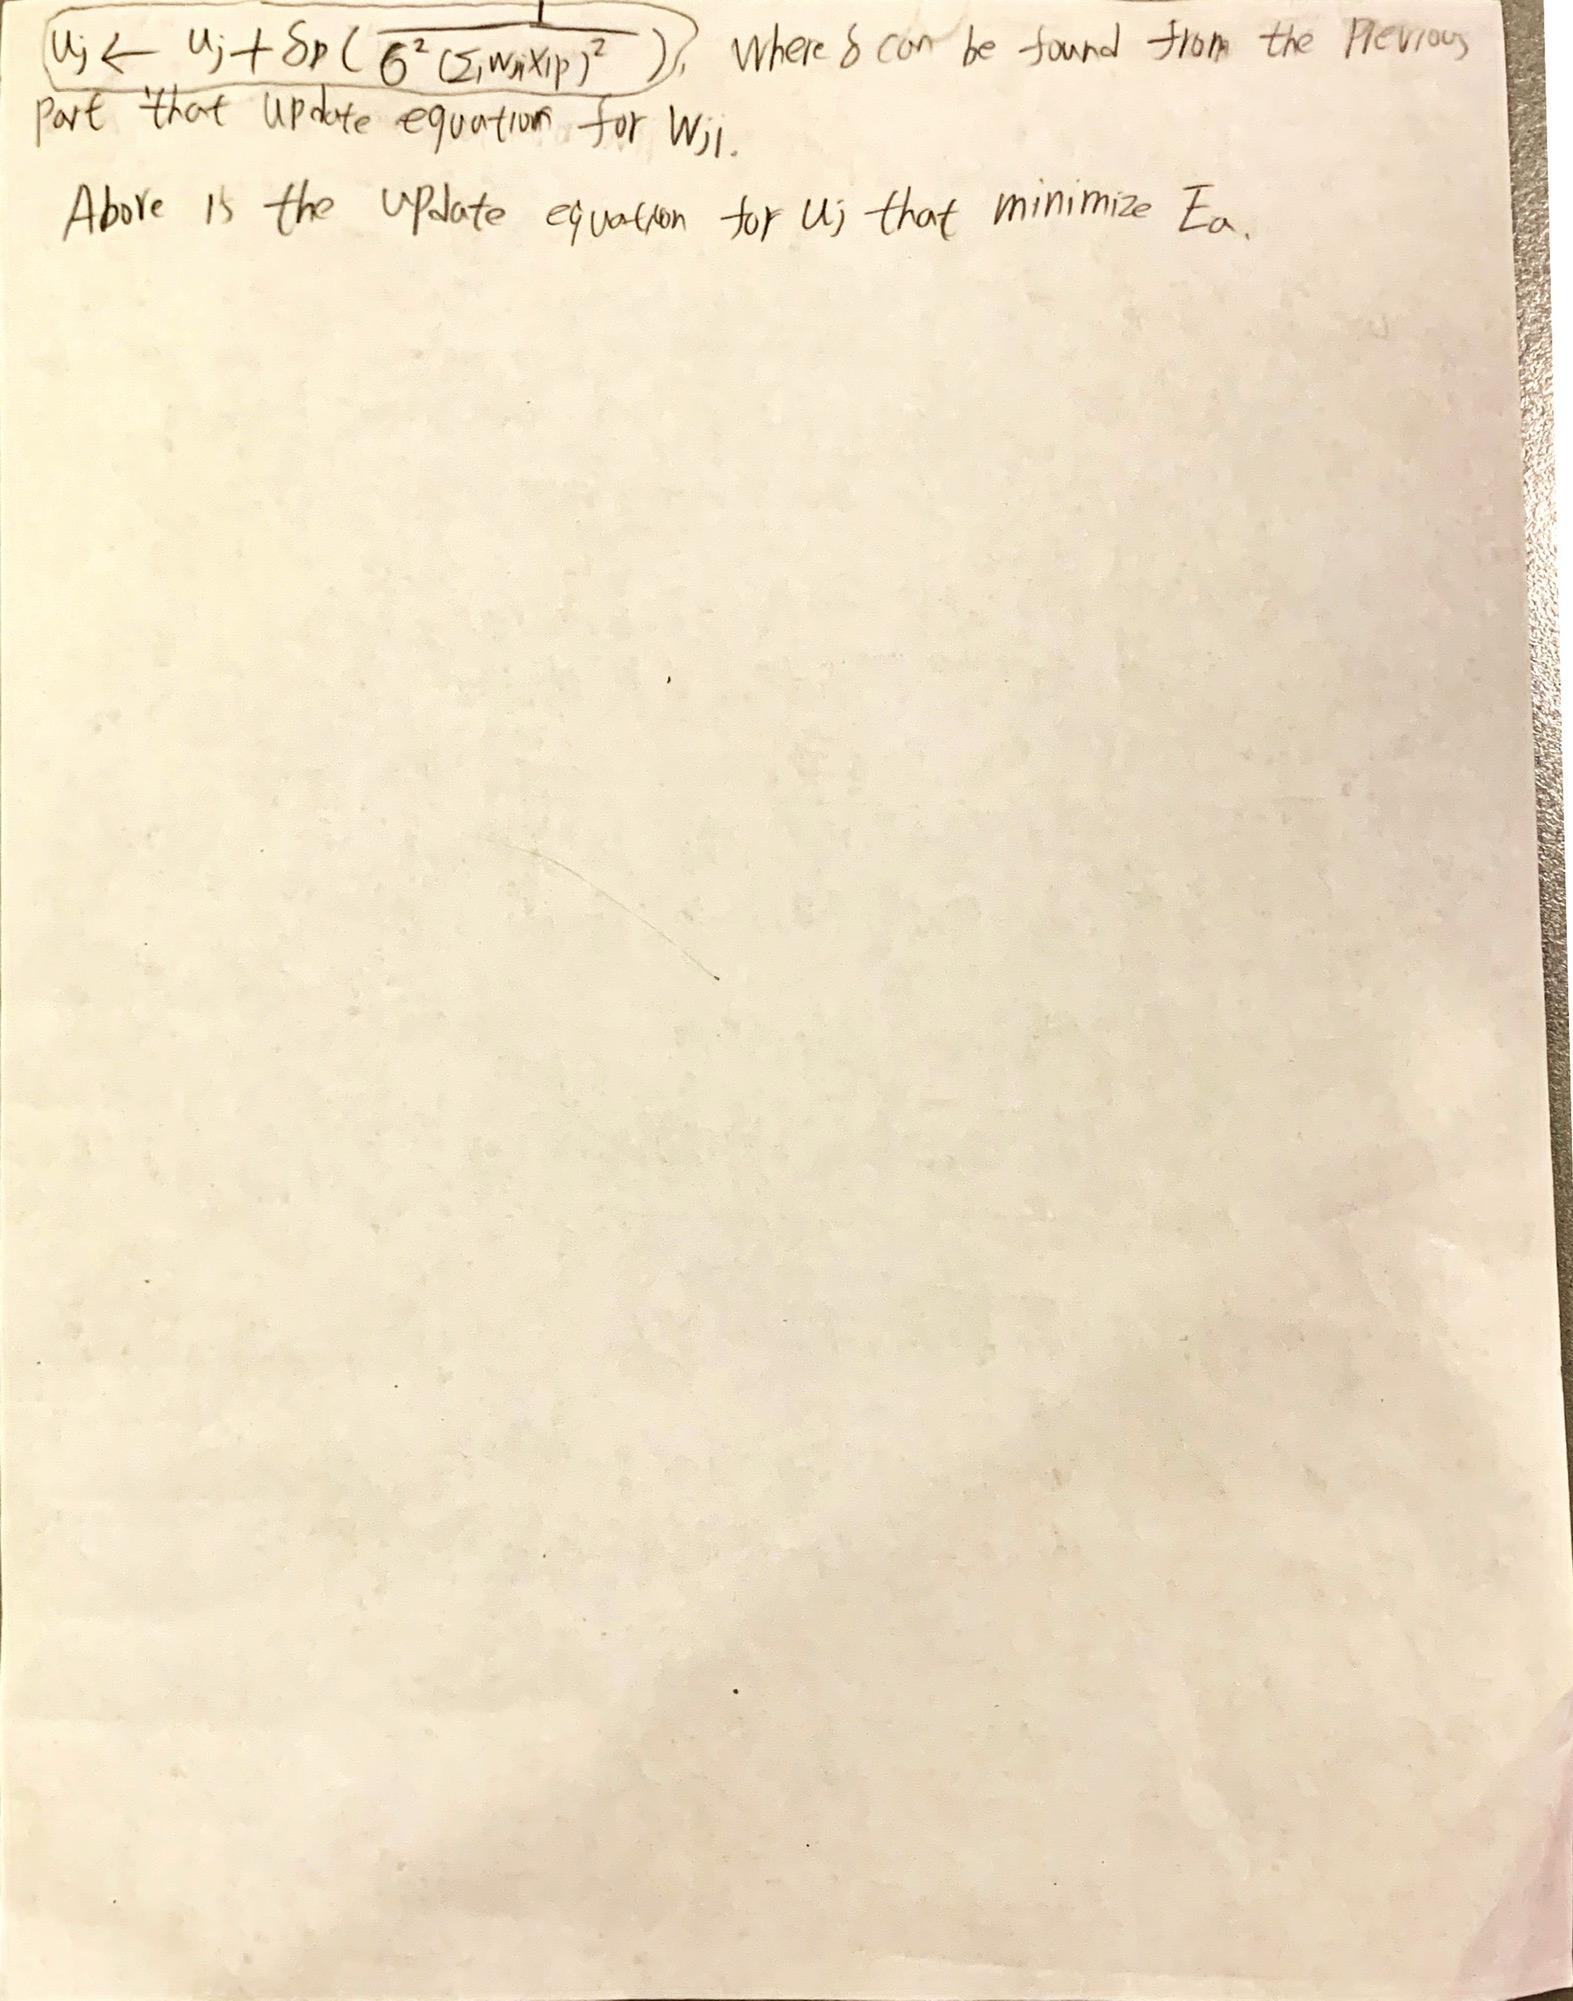 Uj ← Uj + δp ( 1 / 6² (Σi Wji Xip)² ), where δ can be found from the Previous
part that update equation for Wji.
Above is the update equation for Uj that minimize Ea.